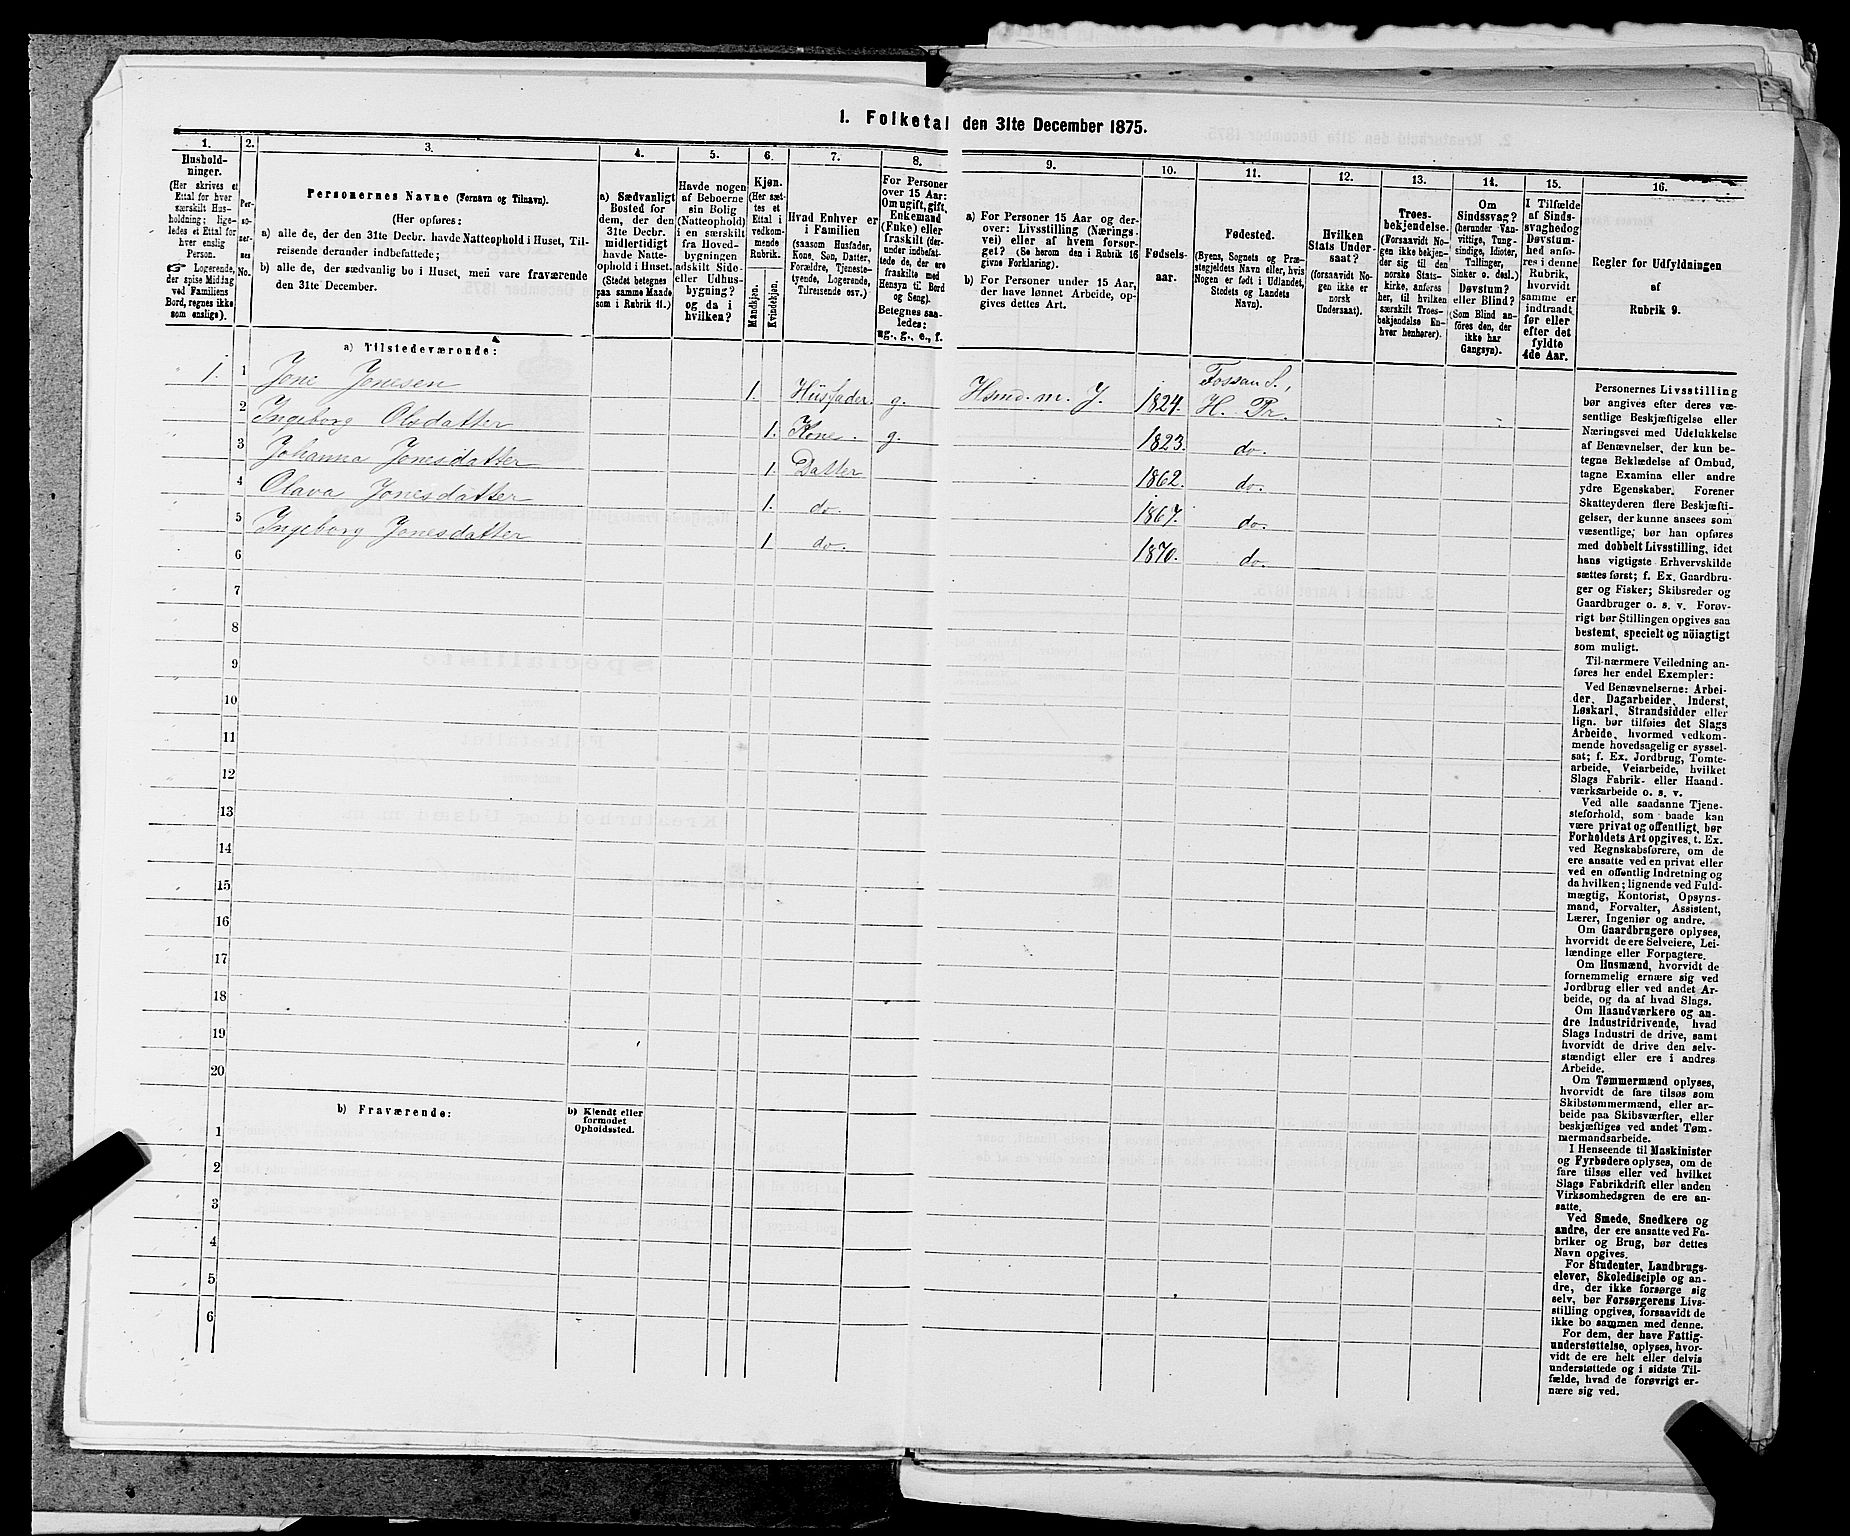 1. Folketal den 31te December 1875.
1. 2. 3. 4. 5. 6. 7. 8. 9. 10. 11. 12. 13. 14. 15. 16.
Hushold-
ninger.
(Her skrives et
Ettal for hver
særskilt Hus-
holdning; lige-
ledes et Ettal for
hver enslig
Person.
☞ Logerende,
der spise Middag
ved Familiens
Bord, regnes ikke
som enslige).
Per-
so-
ner-
nes
No.
Personernes Navne (Fornavn og Tilnavn).
(Her opføres:
a) alle de, der den 31te Decbr. havde Natteophold i Huset, Til-
reisende derunder indbefattede;
b) alle de, der sædvanlig bo i Huset, men vare fraværende
den 31te December.
a) Sædvanligt
Bosted for
dem, der den
31te Decbr.
midlertidigt
havde Natte-
ophold i Huset.
(Stedet betegnes
paa samme Maade
som i Rubrik 11.)
Havde nogen
af Beboerne
sin Bolig
(Natteophold)
i en særskilt
fra Hoved-
bygningen
adskilt Side-
eller Udhus-
bygning?
og da i
hvilken?
Kjøn.
(Her sæt-
tes et
Ettal i
vedkom-
mende
Rubrik.
Mandkjøn.
Kvindekjøn.
Hvad Enhver er
i Familien
(saasom Husfader,
Kone, Søn, Datter,
Forældre, Tjeneste-
tyende, Logerende,
Tilreisende osv.)
For Personer
over 15 Aar:
Om ugift, gift,
Enkemand
(Enke) eller
fraskilt (der-
under indbefat-
tede de, der ere
fraskilte med
Hensyn til Bord
og Seng).
Betegnes saa-
ledes:
ug., g., e., f.
a) For Personer 15 Aar og der-
over: Livsstilling (Nærings-
vei) eller af hvem forsør-
get? (Se herom den i Rubrik 16
givne Forklaring).
b) For Personer under 15 Aar,
der have lønnet Arbeide, op-
gives dettes Art.
Fødsels-
aar.
Fødested.
(Byens, Sognets og Præ-
stegjeldets Navn eller, hvis
Nogen er født i Udlandet,
Stedets og Landets
Navn).
Hvilken
Stats Under-
saat?
(forsaavidt No-
gen ikke er
norsk
Undersaat).
Troes-
bekjendelse.
(Forsaavidt No-
gen ikke bekjen-
der sig til den
norske Stats-
kirke, anføres
her, til hvilken
særskilt Troes-
bekjendelse En-
hver henhører).
Om
Sindssvag?
(herunder Van-
vittige, Tung-
sindige, Idioter,
Tullinger,
Sinker o. desl.)
Døvstum?
eller Blind?
(Som Blind an-
føres den, der
ikke har
Gangsyn).
I Tilfælde
af Sinds-
svaghed og
Døvstum-
hed anfø-
res i denne
Rubrik,
hvorvidt
samme er
indtraadt
før eller
efter det
fyldte
4de Aar.
Regler for Udfyldningen
af
Rubrik 9.
a) Tilstedeværende:
1. 1 Jone Jonesen 1. Husfader. g. Hsmd. m. J. 1824. Fossan S., H. Pr.
2 Ingeborg Olsdatter 1. Kone. g. 1823. do.
3 Johanna Jonesdatter 1. Datter 1862. do.
4 Olava Jonesdatter 1. do. 1867. do.
5 Ingeborg Jonesdatter 1. do. 1870. do.
6
7
8
9
10
11
12
13
14
15
16
17
18
19
20
b) Fraværende:
b) Kjendt eller
formodet
Opholdssted.
1
2
3
4
5
6
Personernes Livsstilling
bør angives efter deres væ-
sentlige Beskjæftigelse eller
Næringsvei med Udelukkelse
af Benævnelser, der kun be-
tegne Beklædelse af Ombud,
tagne Examina eller andre
ydre Egenskaber. Forener
Skatteyderen flere Beskjæfti-
gelser, der kunne ansees som
væsentlige, bør han opføres
med dobbelt Livsstilling, idet
hans vigtigste Erhvervskilde
sættes først; f. Ex. Gaardbru-
ger og Fisker; Skibsreder og
Gaardbruger o. s. v. Forøv-
rigt bør Stillingen opgives saa
bestemt, specielt og nöiagtigt
som muligt.
Til nærmere Veiledning an-
føres her endel Exempler:
Ved Benævnelserne: Arbei-
der, Dagarbeider, Inderst,
Løskarl, Strandsidder eller
lign. bør tilføies det Slags
Arbeide, hvormed vedkom-
mende hovedsagelig er syssel-
sat; f. Ex. Jordbrug, Tomte-
arbeide, Veiarbeide, hvilket
Slags Fabrik- eller Haand-
værksarbeide o. s. v.
Ved alle saadanne Tjene-
steforhold, som baade kan
være privat og offentligt, bør
Forholdets Art opgives, t. Ex.
ved Regnskabsførere, om de
ere ansatte ved en privat eller
ved en offentlig Indretning og
da hvilken; lignende ved Fuld-
mægtig, Kontorist, Opsyns-
mand, Forvalter, Assistent,
Lærer, Ingeniør og andre.
Om Gaardbrugere oplyses,
hvorvidt de ere Selveiere, Lei-
lændinge eller Forpagtere.
Om Husmænd, hvorvidt de
fornemmelig ernære sig ved
Jordbrug eller ved andet Ar-
beide, og da af hvad Slags.
Om Haandværkere og an-
dre Industridrivende, hvad
Slags Industri de drive, samt
hvorvidt de drive den selv-
stændigt eller ere i andres
Arbeide.
Om Tømmermænd oplyses,
hvorvidt de fare tilsøs som
Skibstømmermænd, eller ar-
beide paa Skibsværfter, eller
beskjæftiges ved andet Tøm-
mermandsarbeide.
I Henseende til Maskinister
og Fyrbødere oplyses, om de
fare tilsøs eller ved hvilket
Slags Fabrikdrift eller anden
Virksomhedsgren de ere an-
satte.
Ved Smede, Snedkere og
andre, der ere ansatte ved Fa-
briker og Brug, bør dettes
Navn opgives.
For Studenter, Landbrugs-
elever, Skoledisciple og an-
dre, der ikke forsørge sig
selv, bør Forsørgerens Livs-
stilling opgives, forsaavidt de
ikke bo sammen med denne.
For dem, der have Fattig-
understøttelse, oplyses, hvor-
vidt de ere helt eller delvis
understøttede og i sidste Til-
fælde, hvad de forøvrigt er-
nære sig ved.